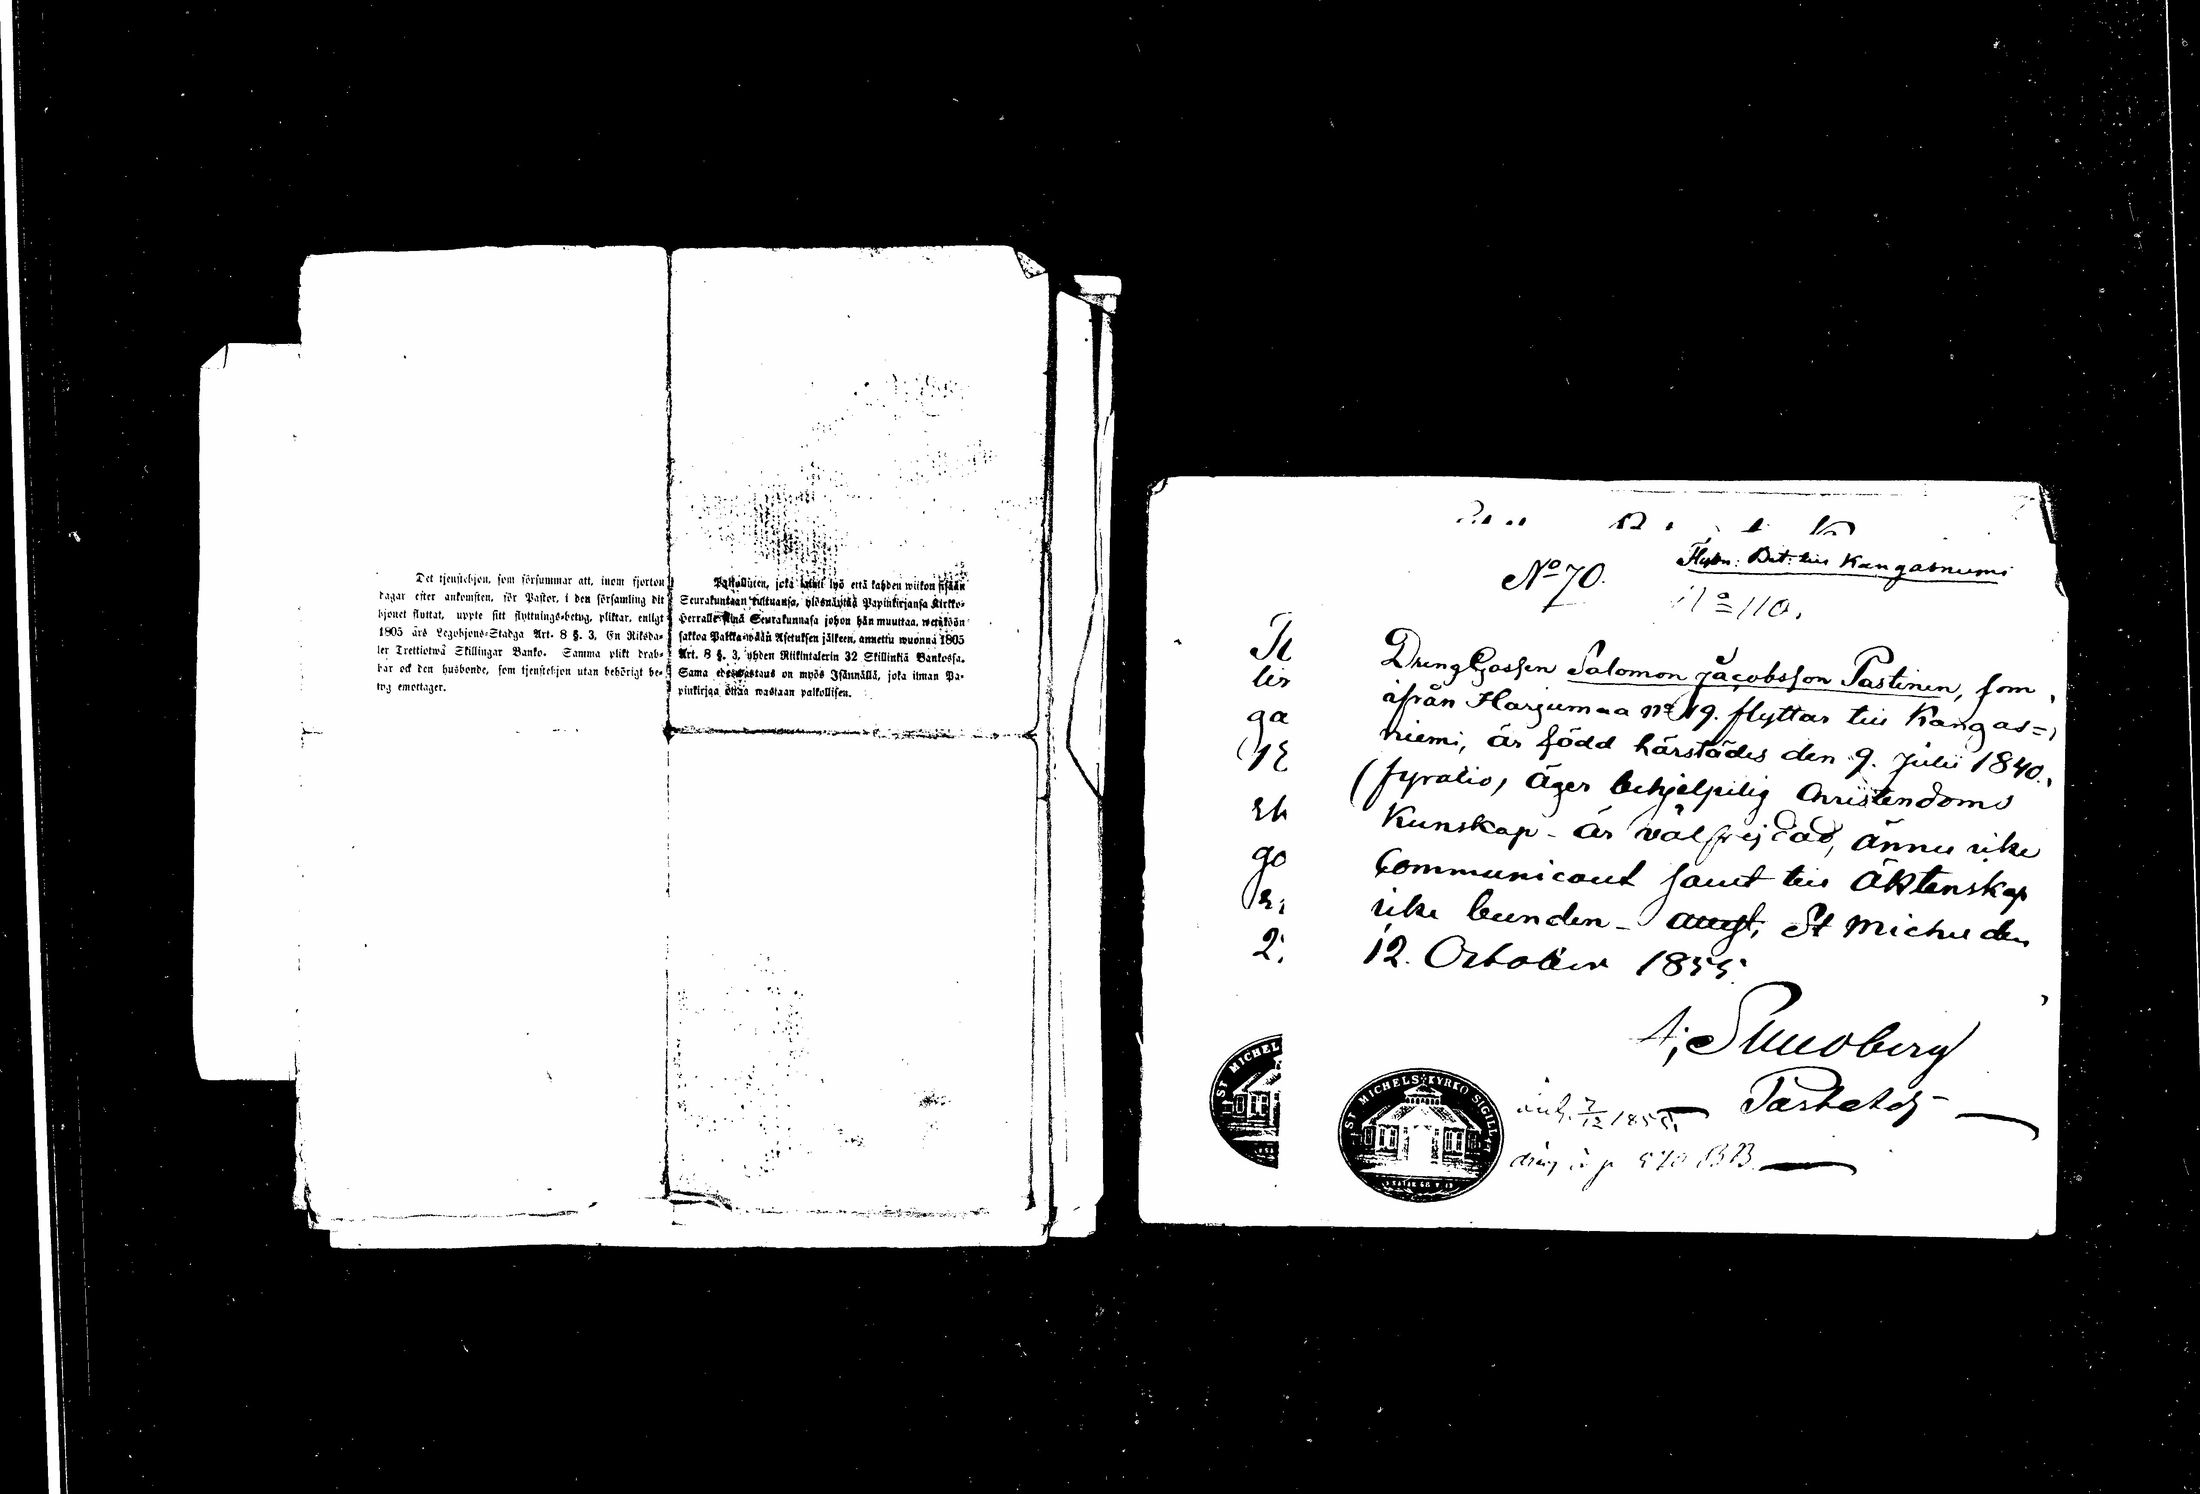 Det tjenstehjon, som försummar att, inom fjorton
dagar efter ankomsten, för Pastor, i den församling dit
hjonet flyttat, uppte sitt flyttnings-betyg, pliktar, enligt
1805 års Legohjons-Stadga Art. 8 §. 3, En Riksda-
ler Trettiotwå Skillingar Banko. Samma plikt drab-
bar ock den husbonde, som tjenstehjon utan behörigt be-
tyg emottager.
Palkollinen, joka lyö että kahden wiikon sisään
Seurakuntaan tultuansa, ylösnäyttää Papinkirjansa Kirkko-
Herralle siinä Seurakunnasa johon hän muuttaa, wetäköön
sakkoa Palkka-wään Asetuksen jälkeen, annettu wuonna 1805
Art. 8 §. 3, yhden Riikintalerin 32 Skillinkiä Bankossa.
Sama edeswastaus on myös Isännällä, joka ilman Pa-
pinkirjaa ottaa wastaan palkollisen.
Flyttn: Bet: till Kangasniemi
No 70.
No 110.
Dreng Gossen Salomon Jacobsson Pastinen, som
ifrån Harjumaa No 19. flyttar till Kangas=
niemi, är född härstädes den 9. Julii 1840.
(fyratio) äger behjelpilig Christendoms
Kunskap - är välfrejdad, ännu icke
Communicant samt till Äktenskap
icke bunden - St Michel den
12. October 1855.
ST MICHELS KYRKO SIGILL
ST MICHEL